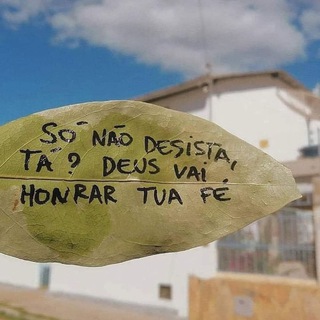 SÓ NÃO DESISTA,
TÁ? DEUS VAI
HONRAR TUA FÉ